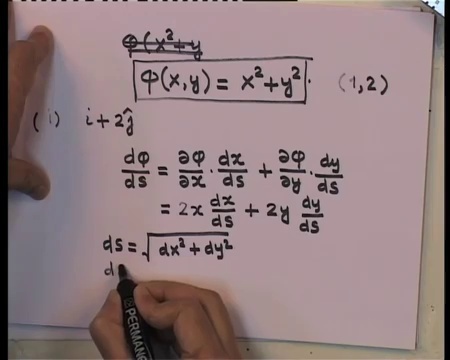 φ(x²+y
φ(x,y) = x²+y². (1,2)
(i) i+2ĵ
dφ/ds = ∂φ/∂x · dx/ds + ∂φ/∂y · dy/ds
= 2x dx/ds + 2y dy/ds
ds = √(dx²+dy²)
d
PERMAN